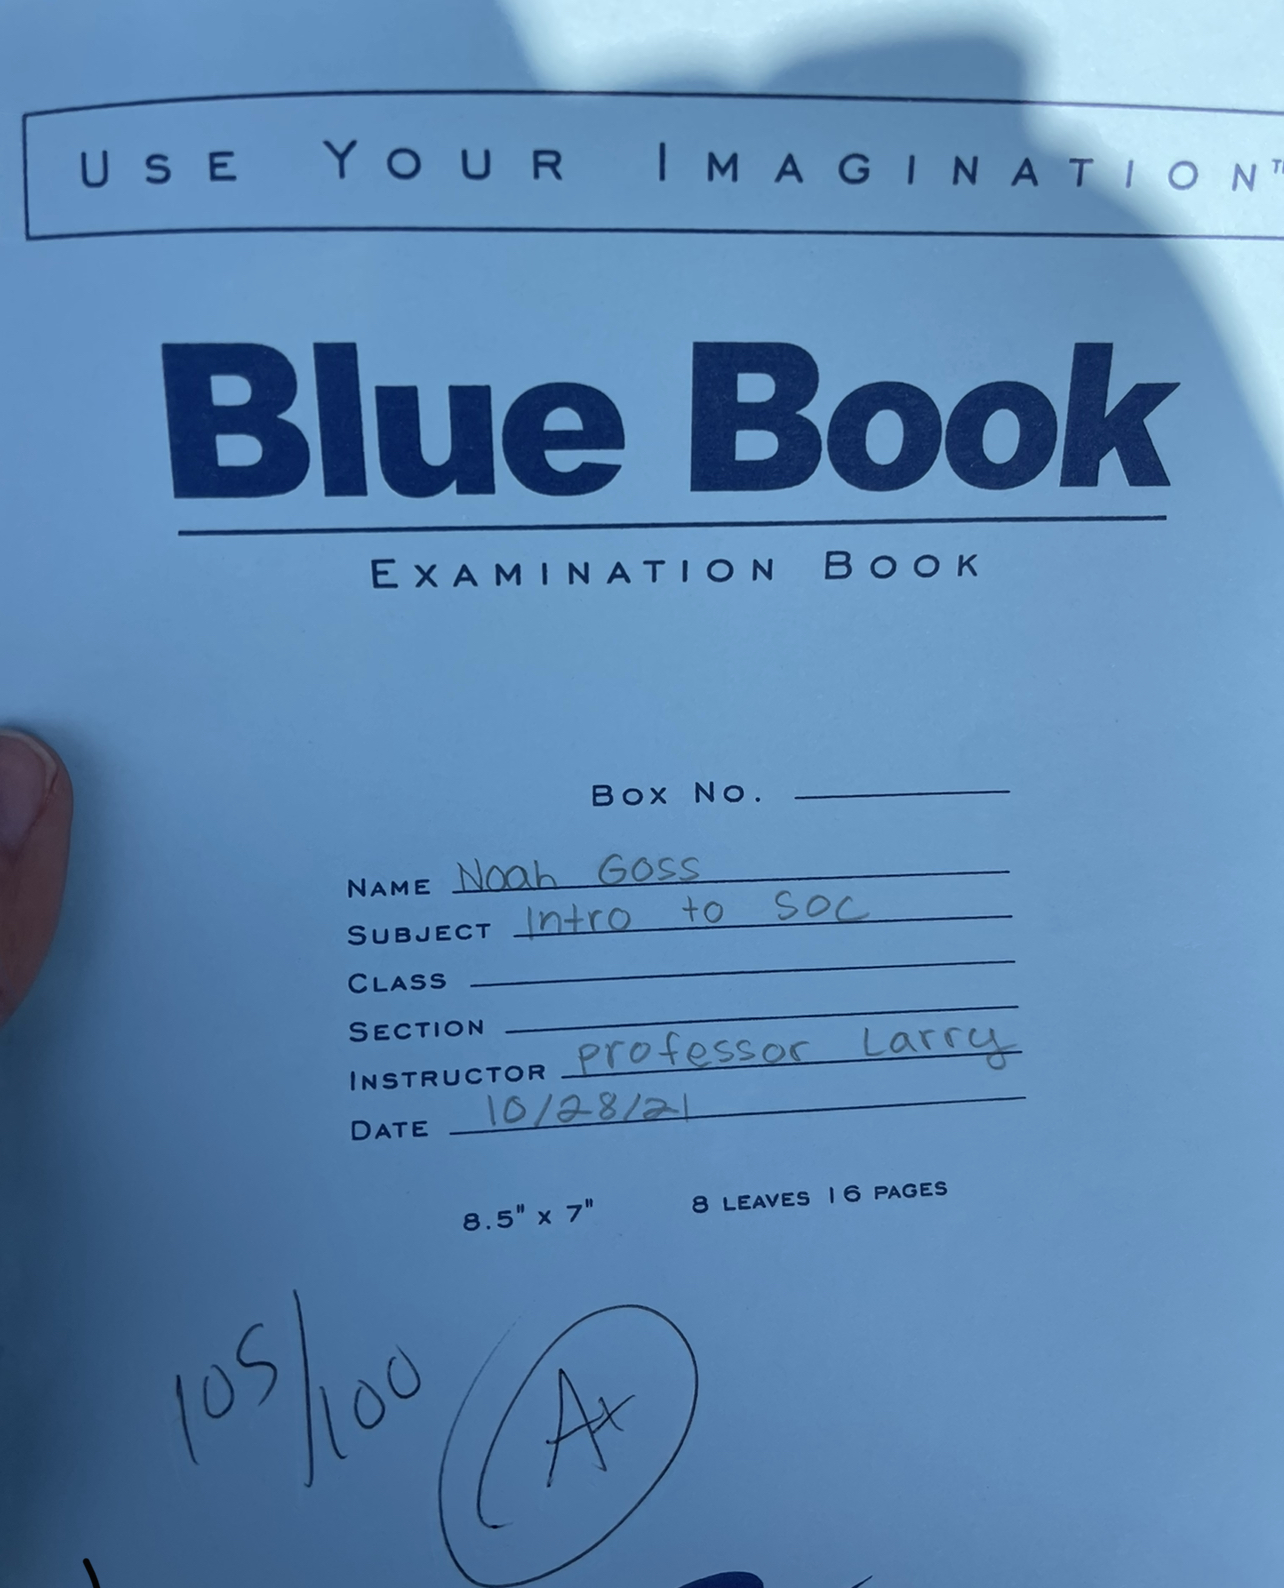 USE YOUR IMAGINATION™
Blue Book
EXAMINATION BOOK
BOX NO.
NAME Noah Goss
SUBJECT Intro to SOC
CLASS
SECTION
INSTRUCTOR professor Larry
DATE 10/28/21
8.5" x 7" 8 LEAVES 16 PAGES
105/100 A+